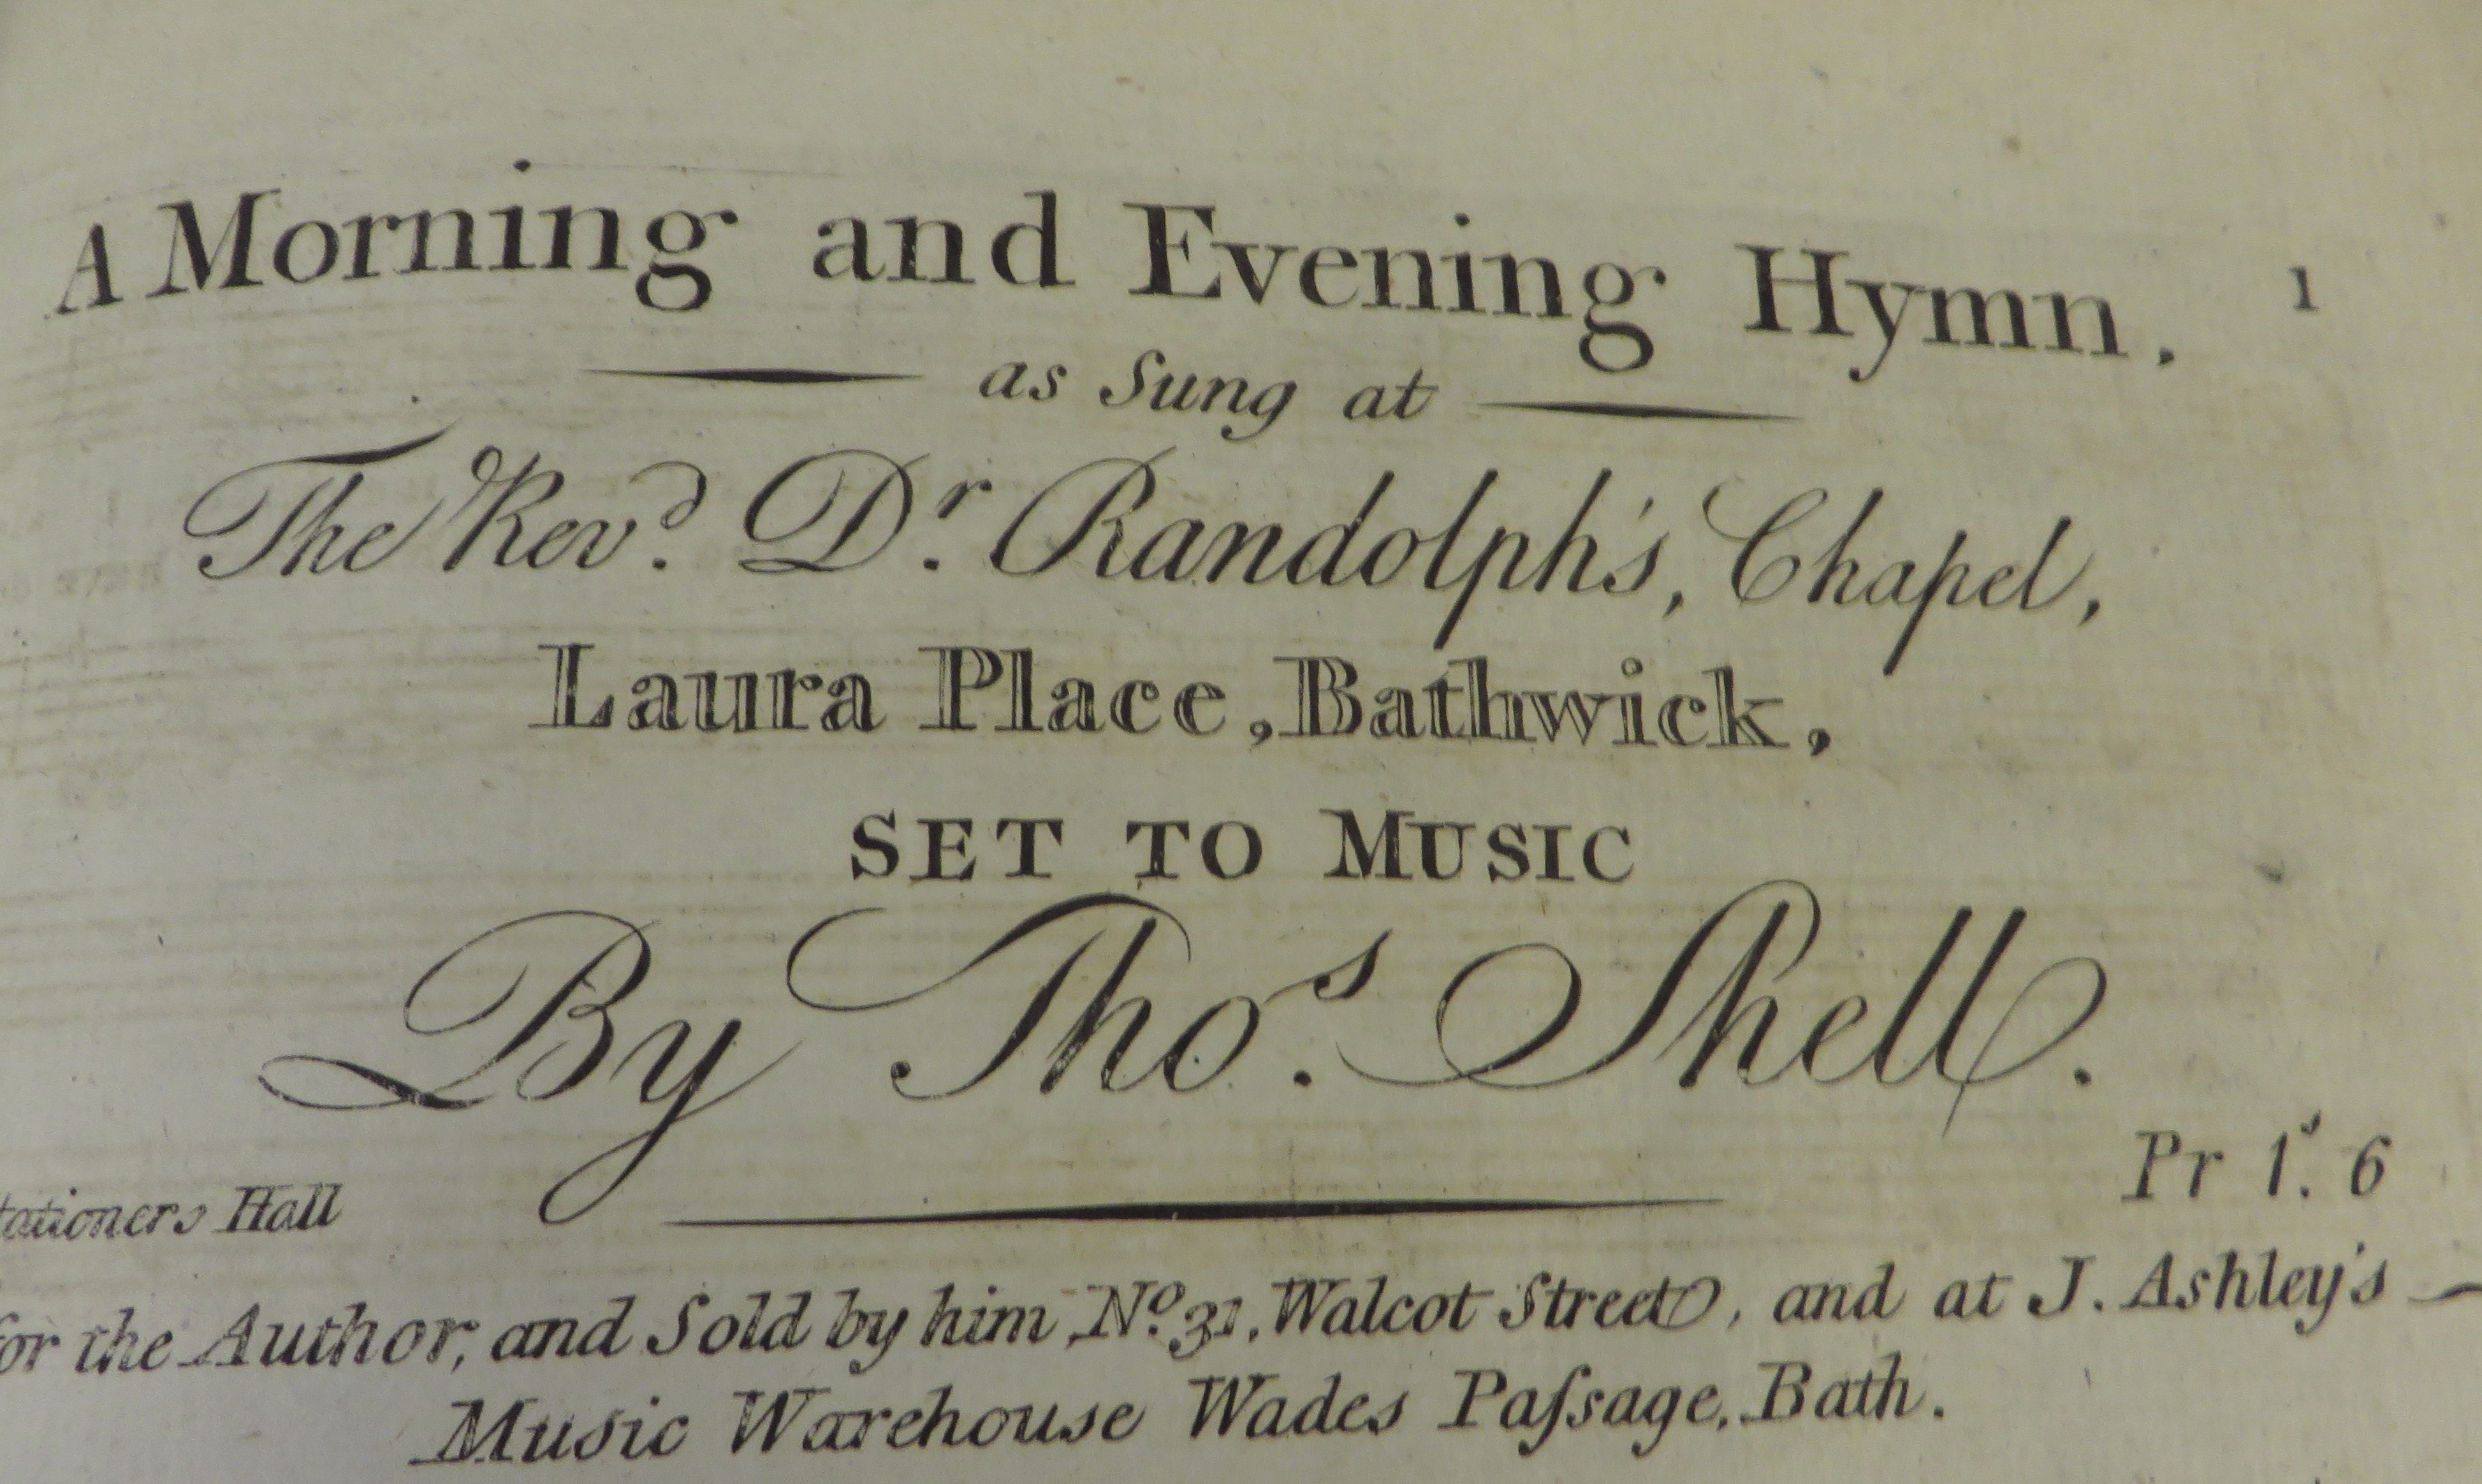 A Morning and Evening Hymn. 1
as Sung at
The Revd. Dr. Randolph's, Chapel,
Laura Place, Bathwick,
SET TO MUSIC
By Thos. Shell.
Pr 1s. 6
tationers Hall
for the Author, and Sold by him No. 31, Walcot Street, and at J. Ashley's
Music Warehouse Wades Paſsage, Bath.